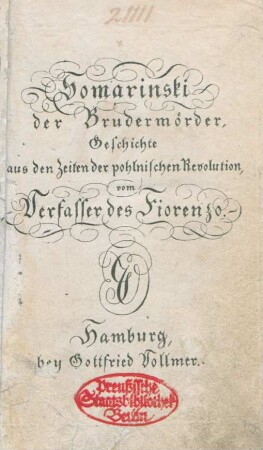 21111
Somarinski
der Brudermörder,
Geschichte
aus den Zeiten der pohlnischen Revolution,
vom
Verfasser des Fiorenzo.
Hamburg,
bey Gottfried Vollmer.
Preußische
Staatsbibliothek
Berlin